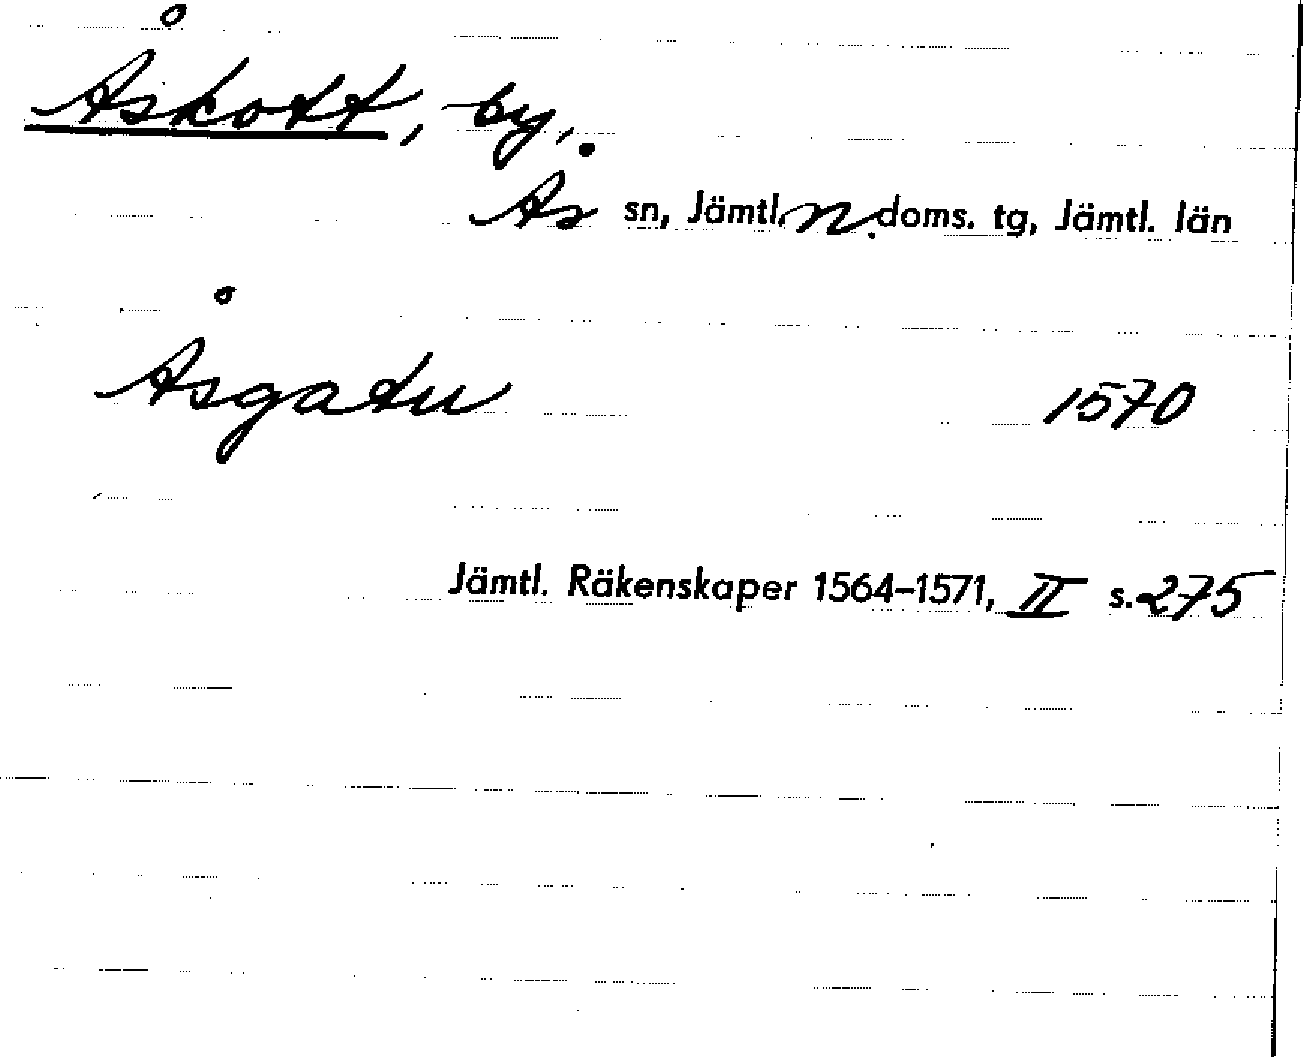 Åskott, by.
Ås sn, Jämtl. n. doms. tg, Jämtl. län
Åsgatu 1570
Jämtl. Räkenskaper 1564–1571, II s. 275